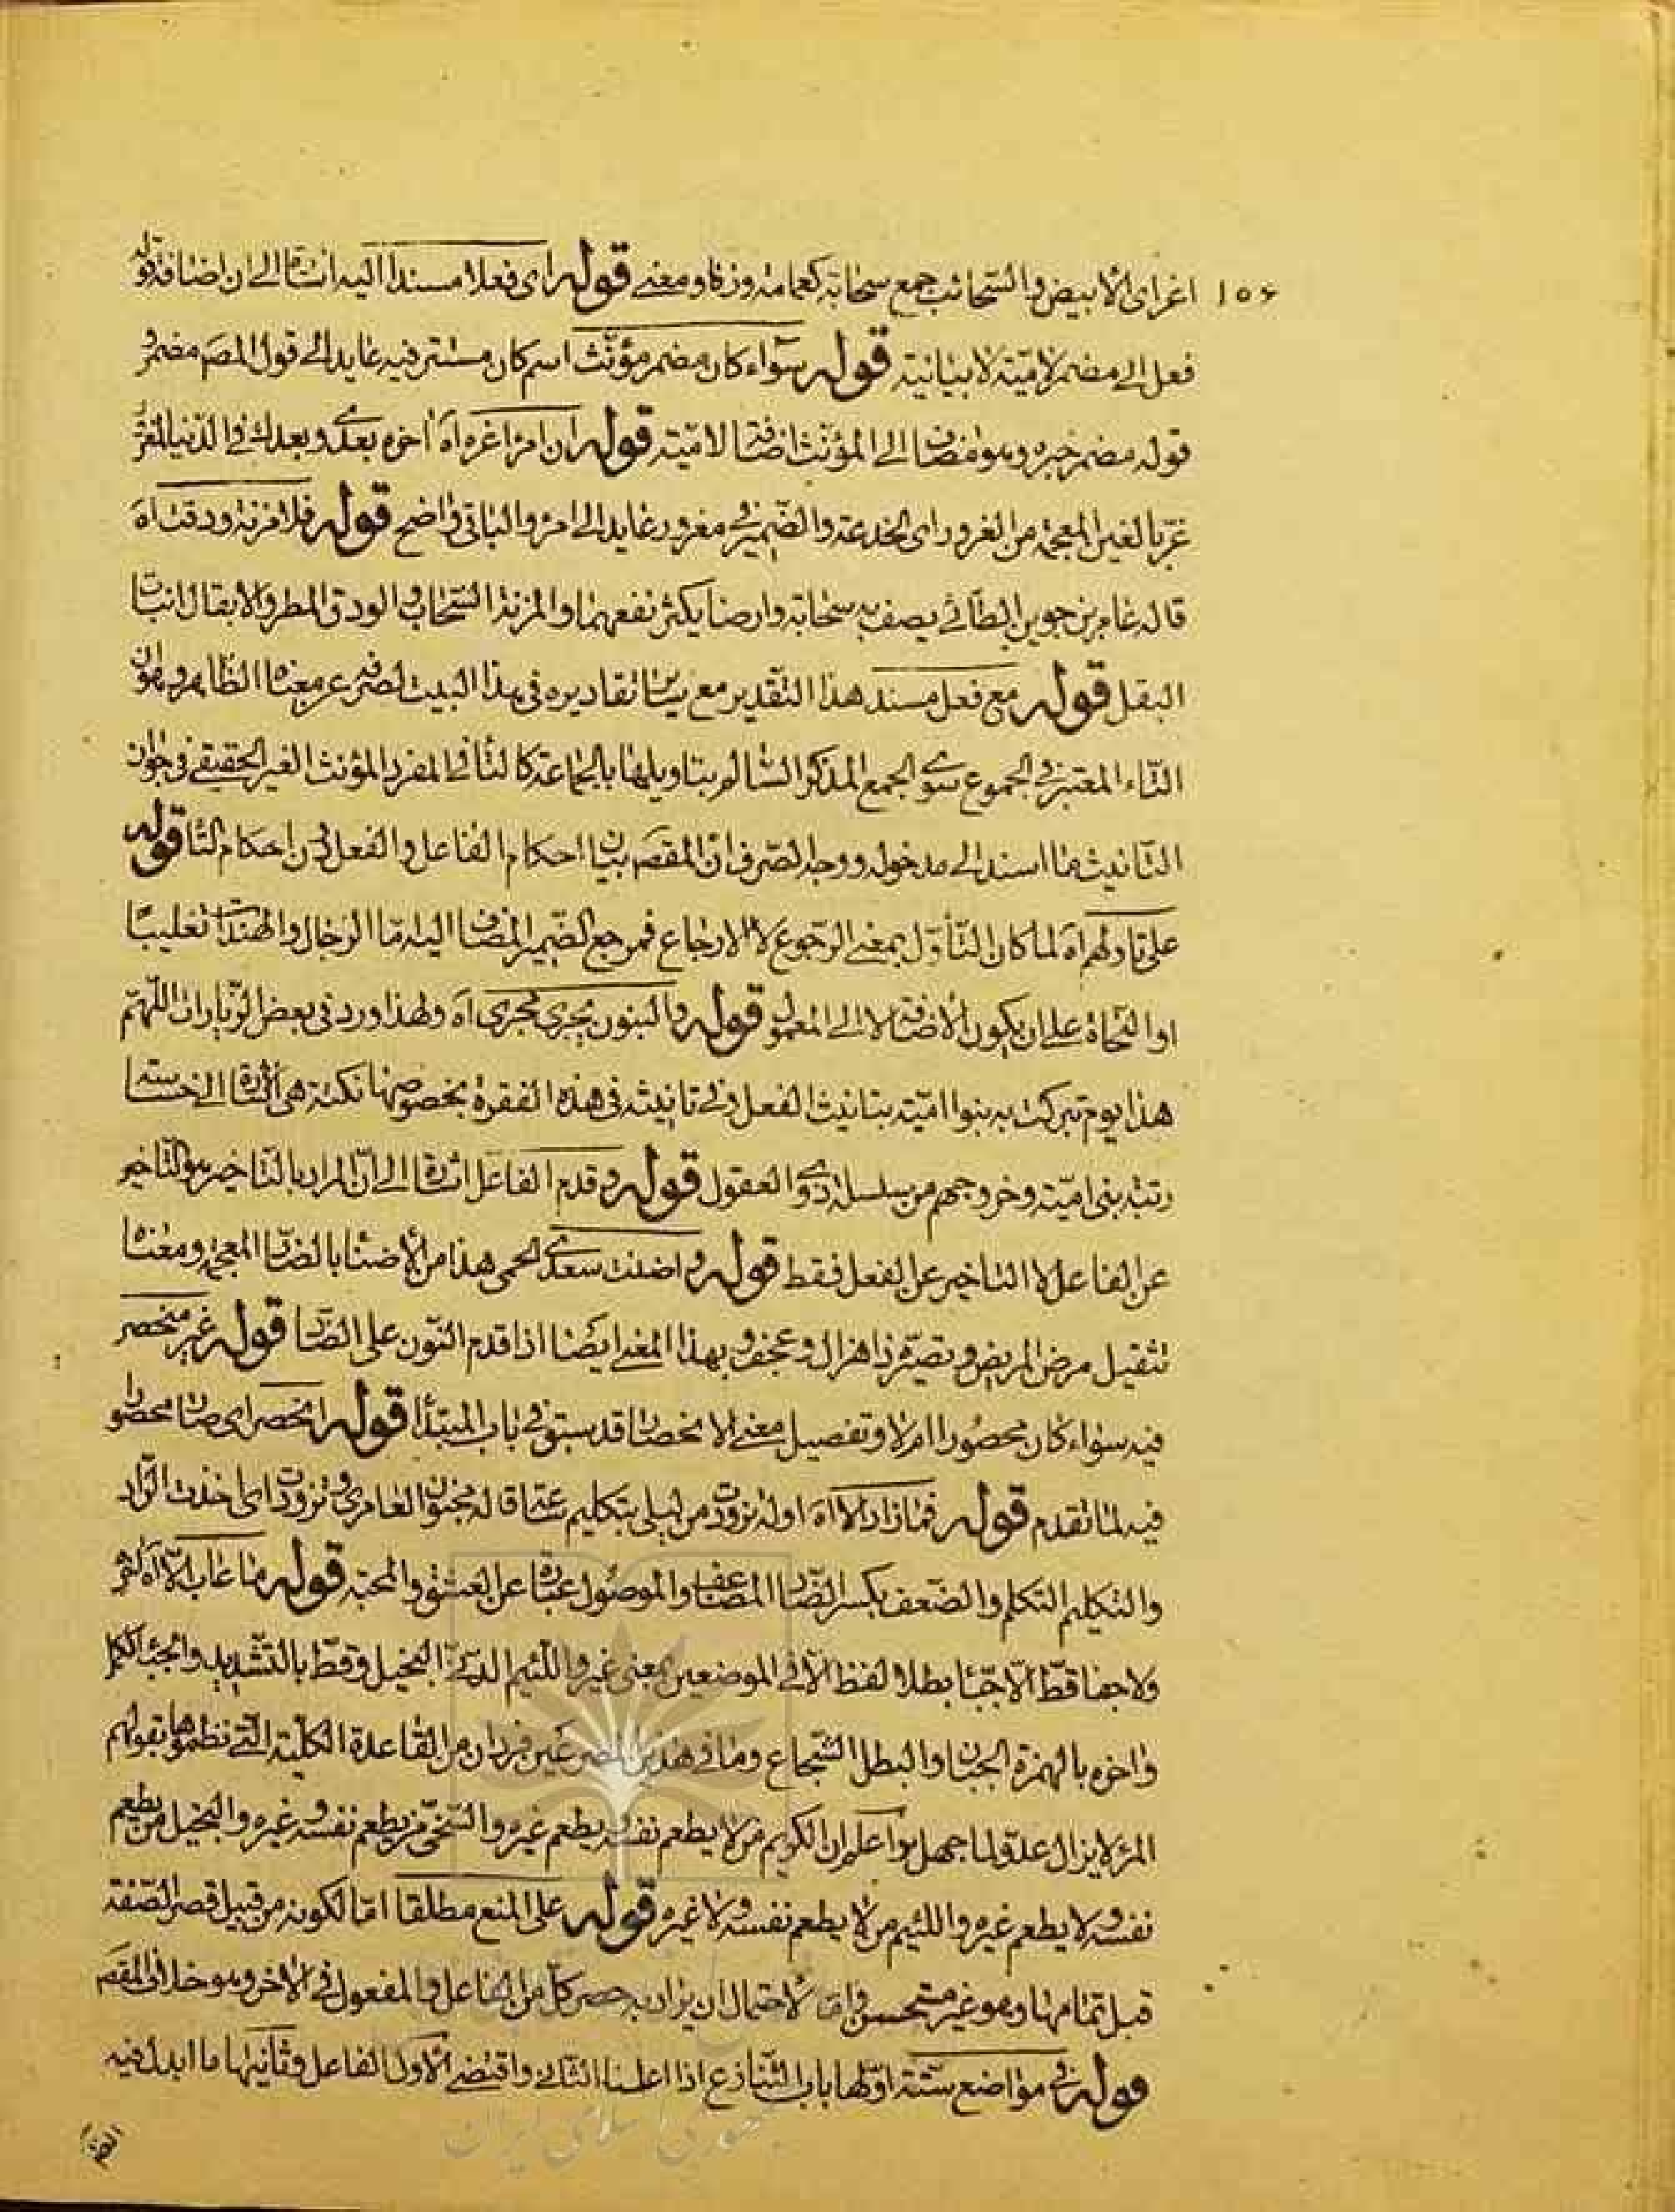 ١٥٤ اغرای الابیض والسحائب جمع سحابة كعمامة وزنا ومعنى قوله ای فعلا مسندا الیه اشارة الى ان اضافة
فعل الى مضمر لامیّة لا بیانیّة قوله سواء کان مضمر مؤنّث اسم کان مستتر فیه عاید الى قول المص مضمر و
قوله مضمر خبره وهو مضاف الى المؤنّث اضافة لامیّة قوله ان امرءا غره اه اخره بعدی وبعدك فی الدنیا لمغرور
غرّ بالغین المعجمة من الغرور ای الخدعة والضّمیر فی مغرور عاید الى امرء والباقی واضح قوله فلا مزنة ودقت اه
قاله عامر بن جوین الطائی یصف به سحابة وارضا یکثر نفعهما والمزنة السّحاب والودق المطر والابقال انبات
البقل قوله مع فعل مسند هذا التقدیر مع بیان تقادیره فی هذا البیت لصرفه عن معناه الظاهر وهو ان
التّاء المعتبر فی الجموع سوی الجمع المذکر السّالم بتاویلها بالجماعة کالتّاء فی المفرد المؤنث الغیر الحقیقی فی جواز
التّانیث فما اسند الى مدخوله ووجه الصّرف انّ المقصد بیان احکام الفاعل والفعل دون احکام التّاء قوله
على تاولهم اه لما کان التّأوّل بمعنى الرّجوع لا الارجاع فمرجع الضّمیر المضاف الیه امّا الرّجال والهندات تغلیبًا
او النّحاة على ان یکون الاضافة لا الى المعمول قوله والبنون یجری مجری اه ولهذا ورد فی بعض الزّیارات اللّهمّ
هذا یوم تبرکت به بنوا امیّة بتانیث الفعل وفی تانیثه فی هذه الفقرة بخصوصها نکتة هی الاشارة الى خسّة
رتبة بنی امیّة وخروجهم من سلسلة ذوی العقول قوله وقدم الفاعل اشارة الى انّ المراد بالتّاخیر هو التّاخیر
عن الفاعل لا التاخیر عن الفعل فقط قوله واضنت سعدی الحمى هذا من الاضناء بالضّاد المعجمة ومعناه
تثقیل مرض المریض وتصیّره ذا هزال وعجف وبهذا المعنى ایضا اذا قدم النّون على الضّاد قوله غیر منحصر
فیه سواء کان محصورا ام لا وتفصیل معنى الانحصار قد سبق فی باب المبتدأ قوله انحصر ای صار محصورا
فیه لما تقدم قوله فما زاد الا اه اوله تزوّدت من لیلى بتکلیم ساعة قاله مجنون العامری وتزوّدت ای اخذت الزّاد
والتکلیم التکلم والضّعف بکسر الضّاد المضاعف والموصول عبارة عن العشق والمحبّة قوله ما عاب الّا اه
ولا جفا قطّ الّا جبّأ بطلا لفظ الّا فی الموضعین بمعنى غیر واللّئیم الدنیّ البخیل وقطّ بالتّشدید والجبّأ
واخره بالهمزة الجبان والبطل الشّجاع وما فی هذین غیر من القاعدة الکلّیّة الّتی نظموها بقولهم
المرء لا یزال عدوّا لما جهل واعلم ان الکریم من لا یطعم نفسه ویطعم غیره والسّخیّ من یطعم نفسه وغیره والبخیل من یطعم
نفسه ولا یطعم غیره واللئیم من لا یطعم نفسه ولا غیره قوله على المنع مطلقا امّا لکونه من قبیل قصر الصّفة
قبل تمامها وهو غیر مستحسن وامّا لاحتمال ان یراد به حصر کلّ من الفاعل والمفعول فی الاخر وهو خلاف المقصد
قوله فی مواضع ستّة اوّلها باب التّنازع اذا اعلمنا الثّانی واقتضى الاول الفاعل وثانیها ما ابدل فیه